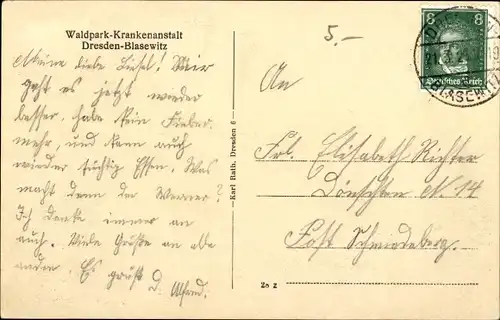 Waldpark-Krankenanstalt
Dresden-Blasewitz
5.-
8 8
Deutsches Reich
BLASEWITZ
Meine liebe Liesel! Mir
geht es jetzt wieder
besser, habe kein Fieber
mehr, und kann auch
wieder tüchtig Essen. Was
macht denn der Werner?
Ich denke immer an
euch. Viele Grüße an alle
andern. Es grüßt D. Alfred.
Karl Rath, Dresden 6
An
Frl. Elisabeth Richter
Dönschten N. 14
Post Schmiedeberg.
Zo 2